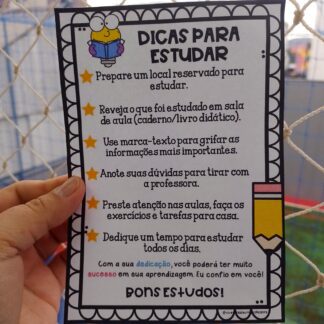 DICAS PARA
ESTUDAR
Prepare um local reservado para
estudar.
Reveja o que foi estudado em sala
de aula (caderno/livro didático).
Use marca-texto para grifar as
informações mais importantes.
Anote suas dúvidas para tirar com
a professora.
Preste atenção nas aulas, faça os
exercícios e tarefas para casa.
Dedique um tempo para estudar
todos os dias.
Com a sua dedicação, você poderá ter muito
sucesso em sua aprendizagem. Eu confio em você!
BONS ESTUDOS!